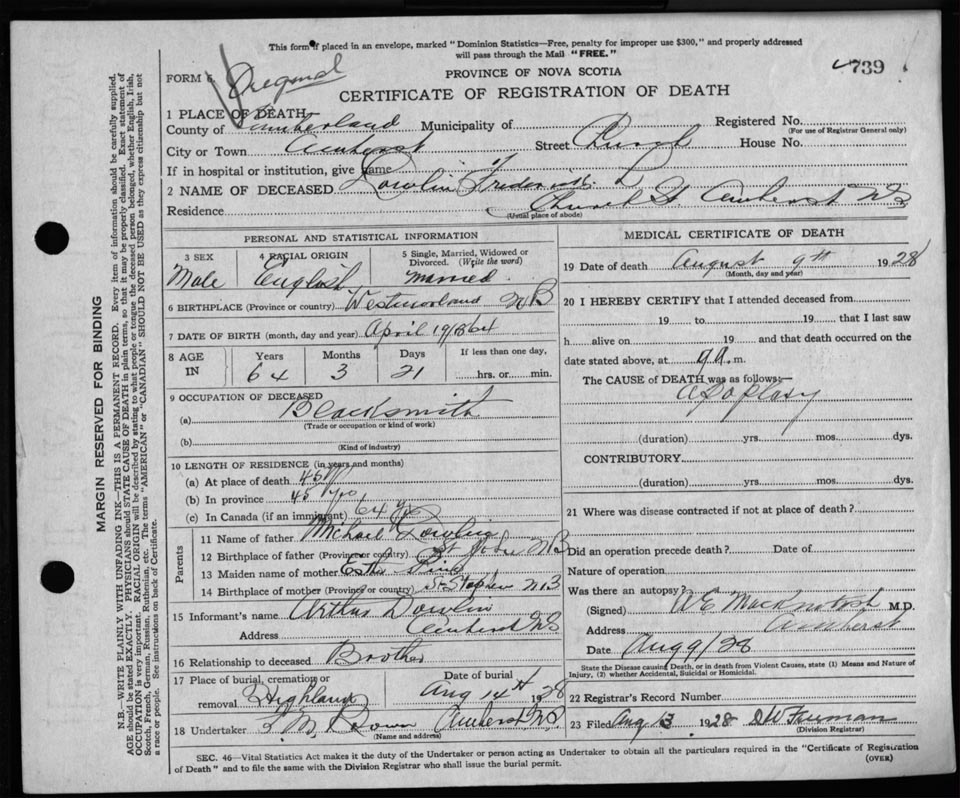 This form if placed in an envelope, marked "Dominion Statistics—Free, penalty for improper use $300," and properly addressed
will pass through the Mail "FREE."
739
FORM 6.
PROVINCE OF NOVA SCOTIA
CERTIFICATE OF REGISTRATION OF DEATH
1 PLACE OF DEATH
Registered No.
(For use of Registrar General only)
County of Cumberland Municipality of
City or Town Amherst Street Church House No.
If in hospital or institution, give name
2 NAME OF DECEASED Dowlin Frederick L
Residence Church St. Amherst NS
(Usual place of abode)
PERSONAL AND STATISTICAL INFORMATION
3 SEX 4 RACIAL ORIGIN 5 Single, Married, Widowed or
Divorced. (Write the word)
Male English Married
6 BIRTHPLACE (Province or country) Westmorland NB
7 DATE OF BIRTH (month, day and year) April 19/1864
8 AGE IN Years Months Days If less than one day,
64 3 21 hrs. or min.
9 OCCUPATION OF DECEASED
(a) Blacksmith
(Trade or occupation or kind of work)
(b)
(Kind of industry)
10 LENGTH OF RESIDENCE (in years and months)
(a) At place of death 45
(b) In province 45 yrs
(c) In Canada (if an immigrant) 64 y
Parents
11 Name of father Michael Dowlin
12 Birthplace of father (Province or country) St John NB
13 Maiden name of mother
14 Birthplace of mother (Province or country) St Stephen NB
15 Informant's name Arthur Dowlin
Address Amherst NS
16 Relationship to deceased Brother
17 Place of burial, cremation or removal Highland
Date of burial Aug 14th 1928
18 Undertaker Brown Amherst NS
(Name and address)
MEDICAL CERTIFICATE OF DEATH
19 Date of death August 9th 1928
(Month, day and year)
20 I HEREBY CERTIFY that I attended deceased from
19 to 19 that I last saw
h alive on 19 and that death occurred on the
date stated above, at 9 a.m.
The CAUSE of DEATH was as follows:—
Apoplexy
(duration) yrs. mos. dys.
CONTRIBUTORY
(duration) yrs. mos. dys.
21 Where was disease contracted if not at place of death?
Did an operation precede death? Date of
Nature of operation
Was there an autopsy?
(Signed) MacKintosh M.D.
Address Amherst
Date Aug 9/28
State the Disease causing Death, or in death from Violent Causes, state (1) Means and Nature of
Injury, (2) whether Accidental, Suicidal or Homicidal.
22 Registrar's Record Number
23 Filed Aug 13 1928
(Division Registrar)
SEC. 46—Vital Statistics Act makes it the duty of Undertaker or person acting as Undertaker to obtain all the particulars required in the "Certificate of Registration
of Death" and to file the same with the Division Registrar who shall issue the burial permit.
(OVER)
MARGIN RESERVED FOR BINDING
N.B.—WRITE PLAINLY WITH UNFADING INK—THIS IS A PERMANENT RECORD. Every item of information should be carefully supplied.
AGE should be stated EXACTLY. PHYSICIANS should STATE CAUSE OF DEATH in plain terms, so that it may be properly classified. Exact statement of
OCCUPATION is very important. RACIAL ORIGIN will be described by stating to what people or tongue the deceased person belonged, whether English, Irish,
Scotch, French, German, Russian, Ruthenian, etc. The terms "AMERICAN" or "CANADIAN" SHOULD NOT BE USED as they express citizenship but not
a race or people. See instructions on back of Certificate.